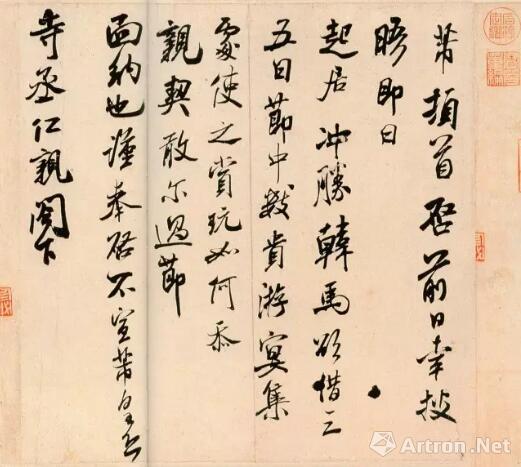 芾頓首启前日幸披
晤即日
起居冲勝韓馬欲借三
五日節中數貴游宴集
處使之賞玩如何忝
親契敢尔過節
面納也謹奉启不宣芾皇恐
寺丞仁親閣下
Artron.Net